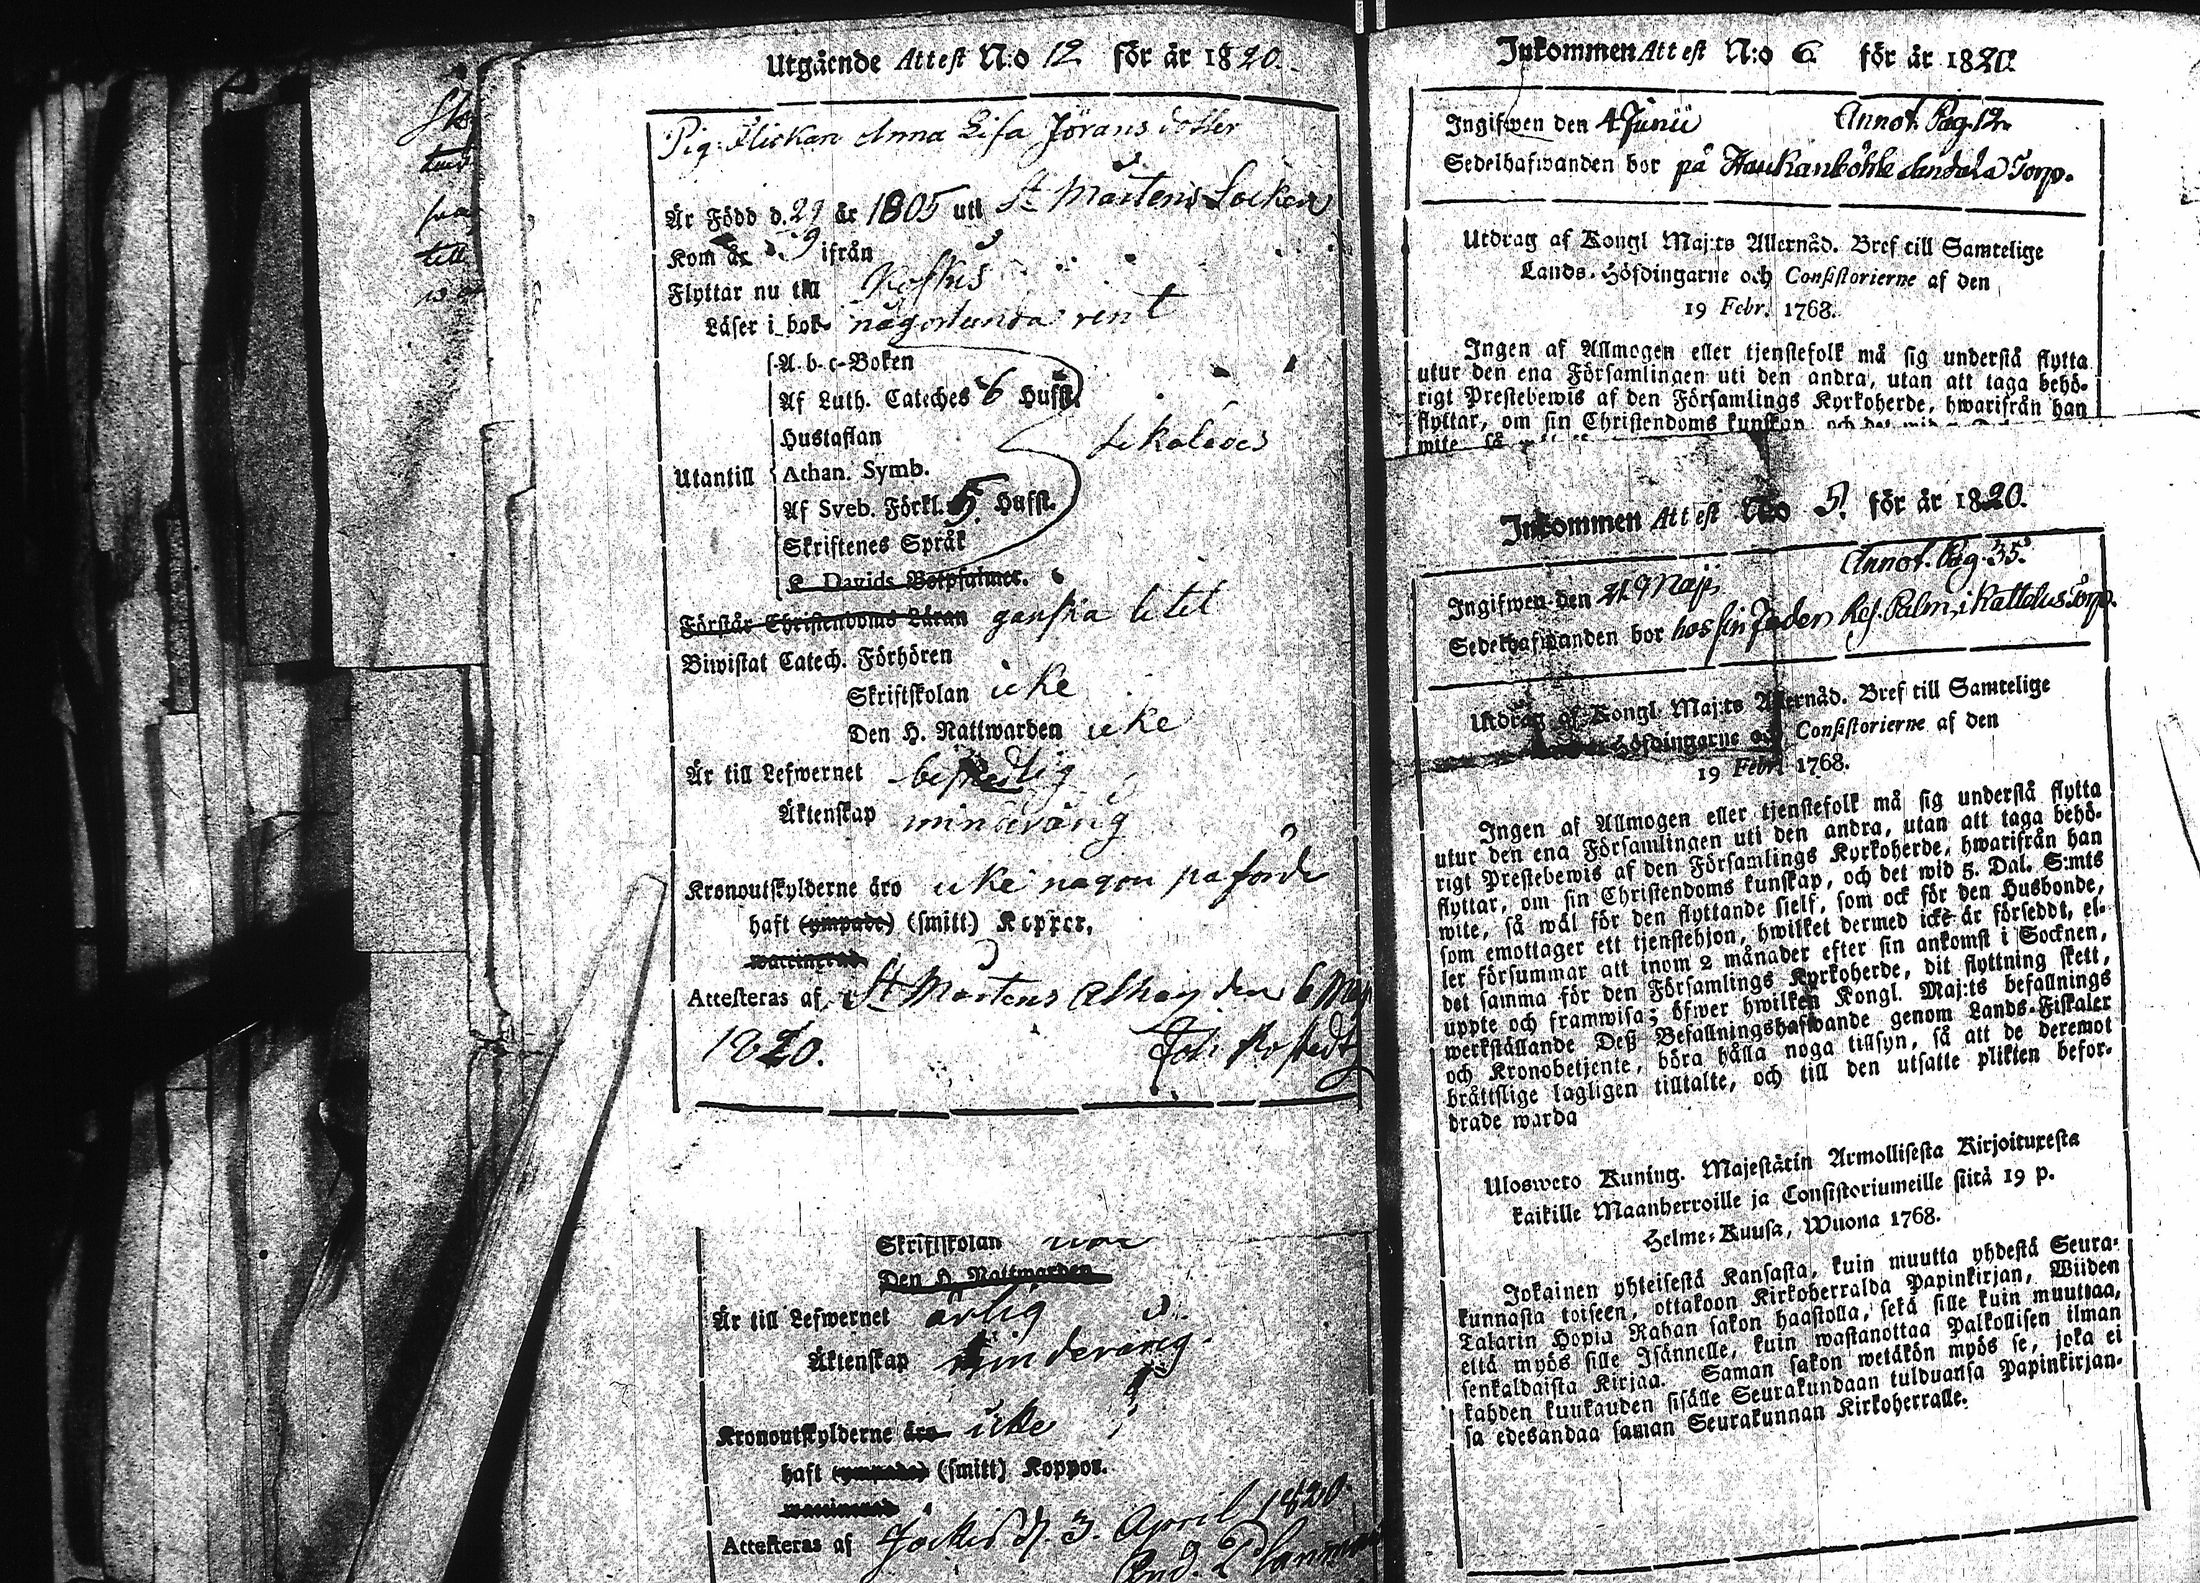 Utgående Attest N:o 12 för år 1820.
Pig. Flickan Anna Lisa Jörans dotter
Är Född d. 29 år 1805 uti St Mårtens Socken
Kom år 9 ifrån
Flyttar nu till Koskis
Läser i bok någorlunda rent
A. b. c-Boken
Af Luth. Cateches 6 Hufst.
Hustaflan
Utantill Athan. Symb.
Af Sveb. Förkl. 5. Hufst.
Skriftenes Språk
K Davids Botpsalmer.
Förstår Christendoms Läran ganska litet
Biwistat Catech. Förhören
Skriftskolan icke
Den H. Nattwarden icke
Är till Lefwernet beskedlig
Äktenskap minderårig
Kronoutskylderne äro icke någon påförde
haft (ympade) (smitt) Koppor.
waccinerad
Attesteras af St Mårtens den 6 Maj
1820. Joh
Skriftskolan
Den H. Nattwarden
Är till Lefwernet ärlig
Äktenskap minderårig.
Kronoutskylderne äro icke
haft (ympade) (smitt) Koppor.
waccinerad
Attesteras af d. 3. April 1820.
And.
Inkommen Attest N:o 6 för år 1820.
Ingifwen den 4 Junii Annot. Pag. 12.
Sedelhafwanden bor på Torp.
Utdrag af Kongl Maj:ts Allernåd. Bref till Samtelige
Lands-Höfdingarne och Consistorierne af den
19 Febr. 1768.
Ingen af Allmogen eller tjenstefolk må sig understå flytta
utur den ena Församlingen uti den andra, utan att taga behö-
rigt Prestebewis af den Församlings Kyrkoherde, hwarifrån han
flyttar, om sin Christendoms kunskap
wite, så
Inkommen Attest N:o 5. för år 1820.
Ingifwen den 21 Maji Annot. Pag. 35.
Sedelhafwanden bor hos sin Fader Palm, i Torp.
Utdrag af Kongl Maj:ts Allernåd. Bref till Samtelige
Höfdingarne och Consistorierne af den
19 Febr. 1768.
Ingen af Allmogen eller tjenstefolk må sig understå flytta
utur den ena Församlingen uti den andra, utan att taga behö-
rigt Prestebewis af den Församlings Kyrkoherde, hwarifrån han
flyttar, om sin Christendoms kunskap, och det wid 5. Dal. S:mts
wite, så wäl för den flyttande sjelf, som ock för den Husbonde,
som emottager ett tjenstehjon, hwilket dermed icke är förseddt, el-
ler försummar att inom 2 månader efter sin ankomst i Socknen,
det samma för den Församlings Kyrkoherde, dit flyttning skett,
uppte och framwisa; öfwer hwilken Kongl. Maj:ts befallnings
werkställande Deß Befallningshafwande genom Lands-Fiskaler
och Kronobetjente, böra hålla noga tillsyn, så att de deremot
bråttslige lagligen tilltalte, och till den utsatte plikten befor-
drade warda
Uloswero Kuning. Majestätin Armollisesta Kirjoituxesta
kaikille Maanherroille ja Consistoriumeille siitä 19 p.
Helme-Kuusa, Wuona 1768.
Jokainen yhteisestä Kansasta, kuin muutta yhdestä Seura-
kunnasta toiseen, ottakoon Kirkoherralda Papinkirjan, Wiiden
Talarin Hopia Rahan sakon haastolla, sekä sille kuin muuttaa,
että myös sille Isännelle, kuin wastanottaa Palkollisen ilman
senkaldaista Kirjaa. Saman sakon wetäkön myös se, joka ei
kahden kuukauden sisälle Seurakundaan tulduansa Papinkirjan-
sa edesandaa saman Seurakunnan Kirkoherralle.